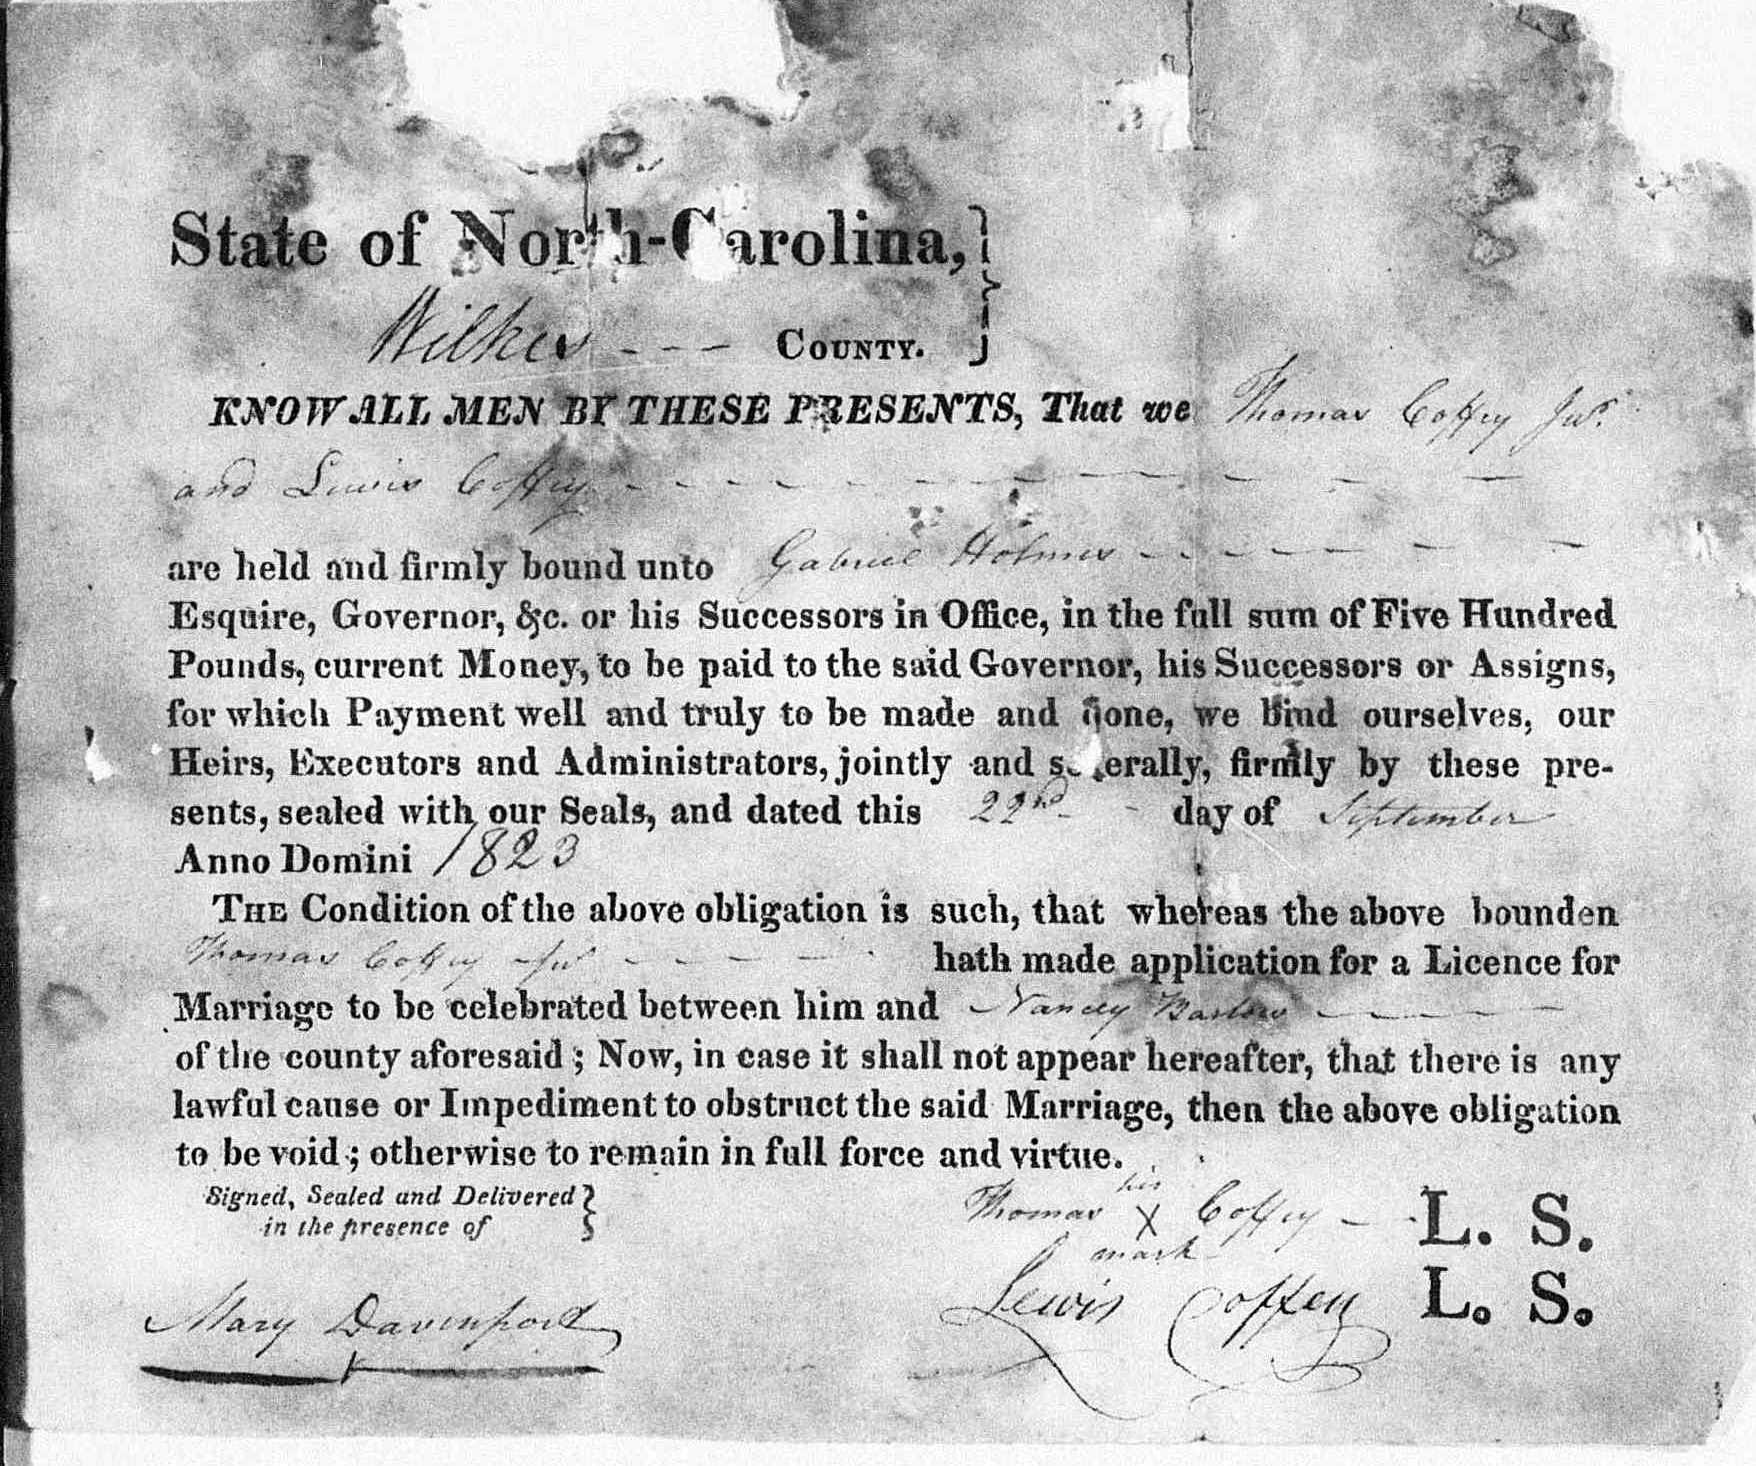 State of North-Carolina,
Wilkes - - - COUNTY.
KNOW ALL MEN BY THESE PRESENTS, That we Thomas Coffey Junr
and Lewis Coffey
are held and firmly bound unto Gabriel Holmes
Esquire, Governor, &c. or his Successors in Office, in the full sum of Five Hundred
Pounds, current Money, to be paid to the said Governor, his Successors or Assigns,
for which Payment well and truly to be made and done, we bind ourselves, our
Heirs, Executors and Administrators, jointly and severally, firmly by these pre-
sents, sealed with our Seals, and dated this 22nd day of September
Anno Domini 1823
THE Condition of the above obligation is such, that whereas the above bounden
Thomas Coffey Junr hath made application for a Licence for
Marriage to be celebrated between him and Nancy Barlow
of the county aforesaid ; Now, in case it shall not appear hereafter, that there is any
lawful cause or Impediment to obstruct the said Marriage, then the above obligation
to be void ; otherwise to remain in full force and virtue.
Signed, Sealed and Delivered
in the presence of
his
Thomas X Coffey L. S.
mark
Lewis Coffey L. S.
Mary Davenport